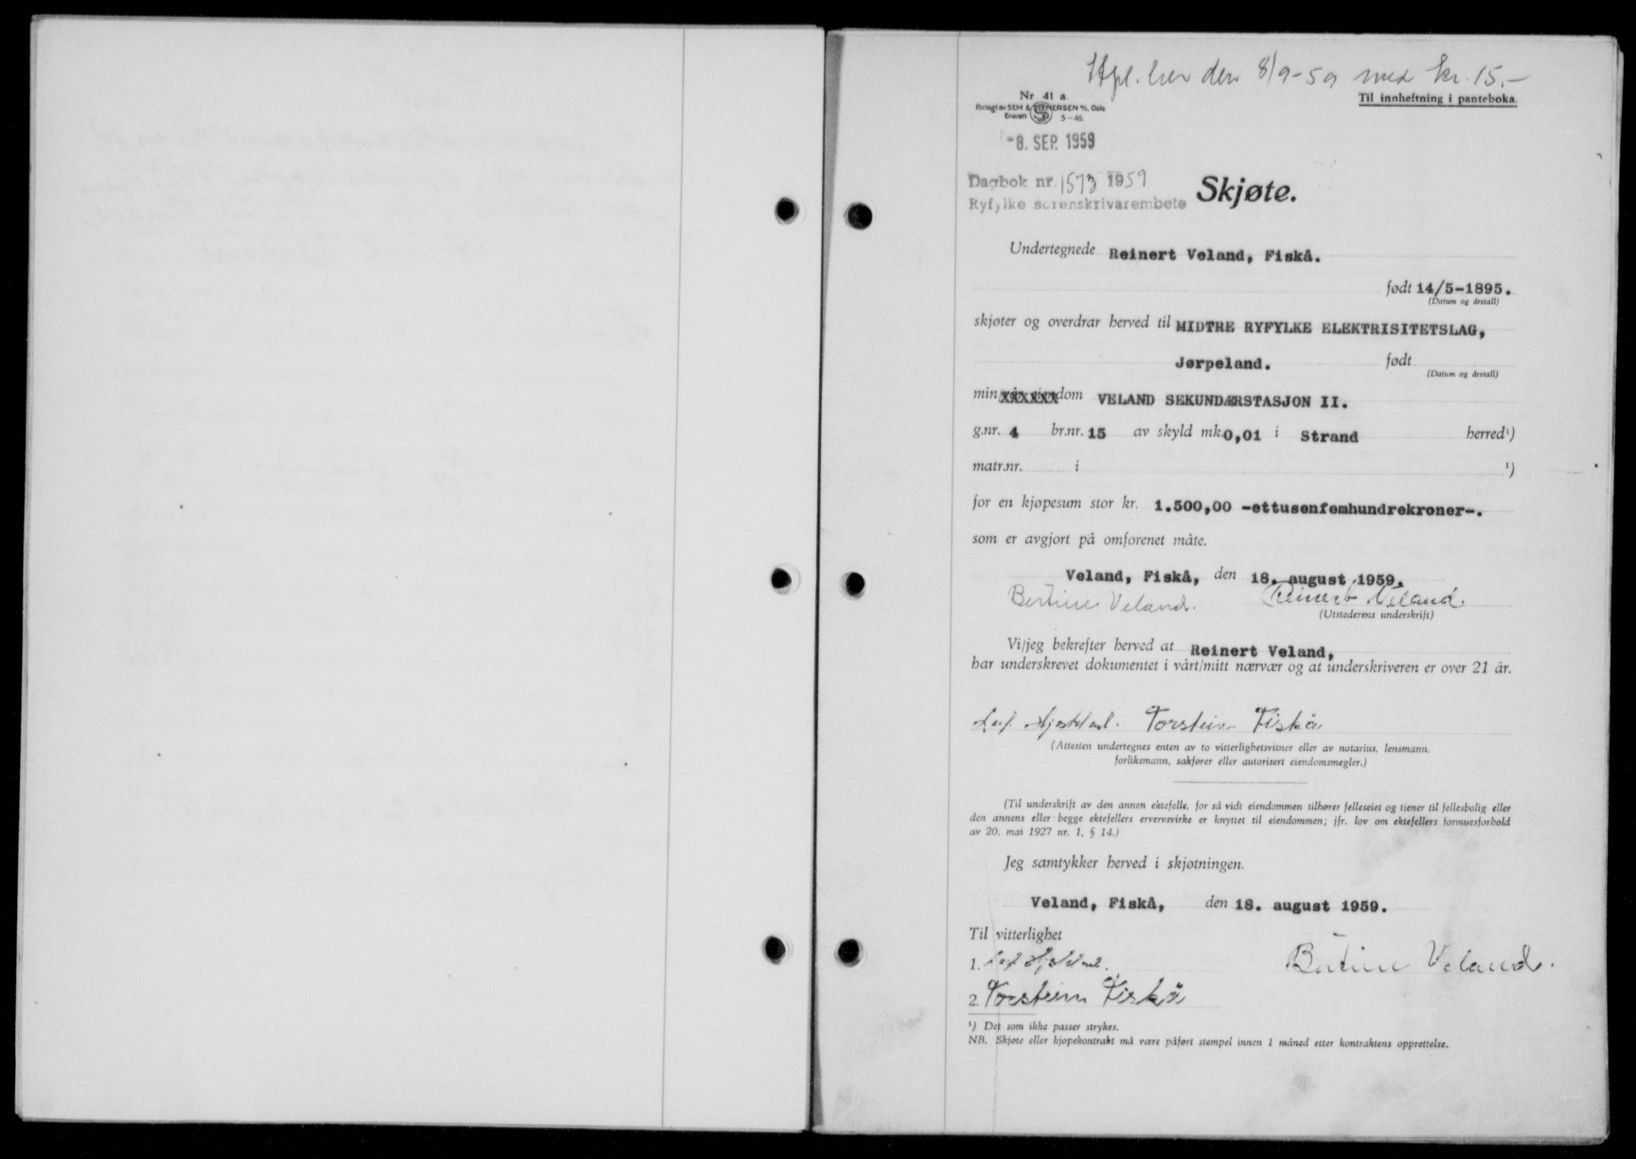 Stpl. her den 8/9-59 med kr. 15.-
Nr. 41 a.
Til innheftning i panteboka.
Forlagt av SEM & STENERSEN A/S, Oslo
Enerett 5-46
-8. SEP. 1959
Dagbok nr. 1573 1959
Ryfylke sorenskrivarembete
Skjøte.
Undertegnede Reinert Veland, Fiskå.
født 14/5-1895.
(Datum og årstall)
skjøter og overdrar herved til MIDTRE RYFYLKE ELEKTRISITETSLAG,
Jørpeland. født
(Datum og årstall)
min eiendom VELAND SEKUNDÆRSTASJON II.
g.nr. 4 br.nr. 15 av skyld mk. 0,01 i Strand herred¹)
matr.nr. i ¹)
for en kjøpesum stor kr. 1.500,00 -ettusenfemhundrekroner-.
som er avgjort på omforenet måte.
Veland, Fiskå, den 18. august 1959.
Bertine Veland. Reinert Veland.
(Utstederens underskrift)
Vi/jeg bekrefter herved at Reinert Veland,
har underskrevet dokumentet i vårt/mitt nærvær og at underskriveren er over 21 år.
Leif Torstein Fiskå
(Attesten undertegnes enten av to vitterlighetsvitner eller av notarius, lensmann,
forliksmann, sakfører eller autorisert eiendomsmegler.)
(Til underskrift av den annen ektefelle, for så vidt eiendommen tilhører felleseiet og tjener til fellesbolig eller
den annens eller begge ektefellers ervervsvirke er knyttet til eiendommen; jfr. lov om ektefellers formuesforhold
av 20. mai 1927 nr. 1, § 14.)
Jeg samtykker herved i skjøtningen.
Veland, Fiskå, den 18. august 1959.
Til vitterlighet
1. Leif
Bertine Veland.
2. Torstein Fiskå
¹) Det som ikke passer strykes.
NB. Skjøte eller kjøpekontrakt må være påført stempel innen 1 måned etter kontraktens opprettelse.